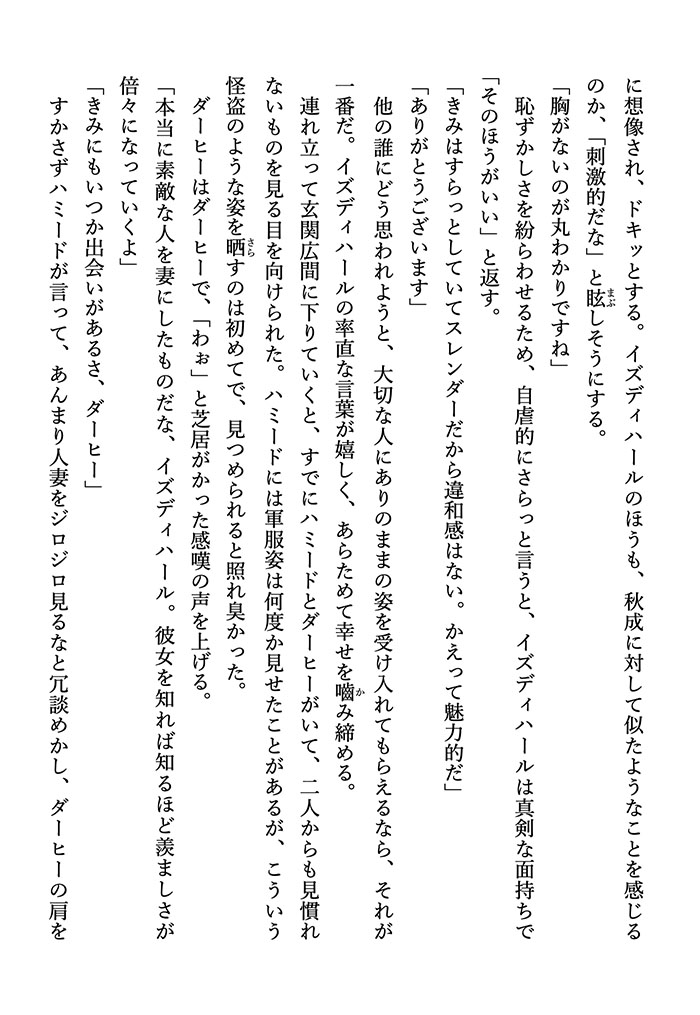 に想像され、ドキッとする。イズディハールのほうも、秋成に対して似たようなことを感じる
のか、「刺激的だな」と眩しそうにする。
「胸がないのが丸わかりですね」
恥ずかしさを紛らわせるため、自虐的にさらっと言うと、イズディハールは真剣な面持ちで
「そのほうがいい」と返す。
「きみはすらっとしていてスレンダーだから違和感はない。かえって魅力的だ」
「ありがとうございます」
他の誰にどう思われようと、大切な人にありのままの姿を受け入れてもらえるなら、それが
一番だ。イズディハールの率直な言葉が嬉しく、あらためて幸せを嚙み締める。
連れ立って玄関広間に下りていくと、すでにハミードとダーヒーがいて、二人からも見慣れ
ないものを見る目を向けられた。ハミードには軍服姿は何度か見せたことがあるが、こういう
怪盗のような姿を晒すのは初めてで、見つめられると照れ臭かった。
ダーヒーはダーヒーで、「わぉ」と芝居がかった感嘆の声を上げる。
「本当に素敵な人を妻にしたものだな、イズディハール。彼女を知れば知るほど羨ましさが
倍々になっていくよ」
「きみにもいつか出会いがあるさ、ダーヒー」
すかさずハミードが言って、あんまり人妻をジロジロ見るなと冗談めかし、ダーヒーの肩を